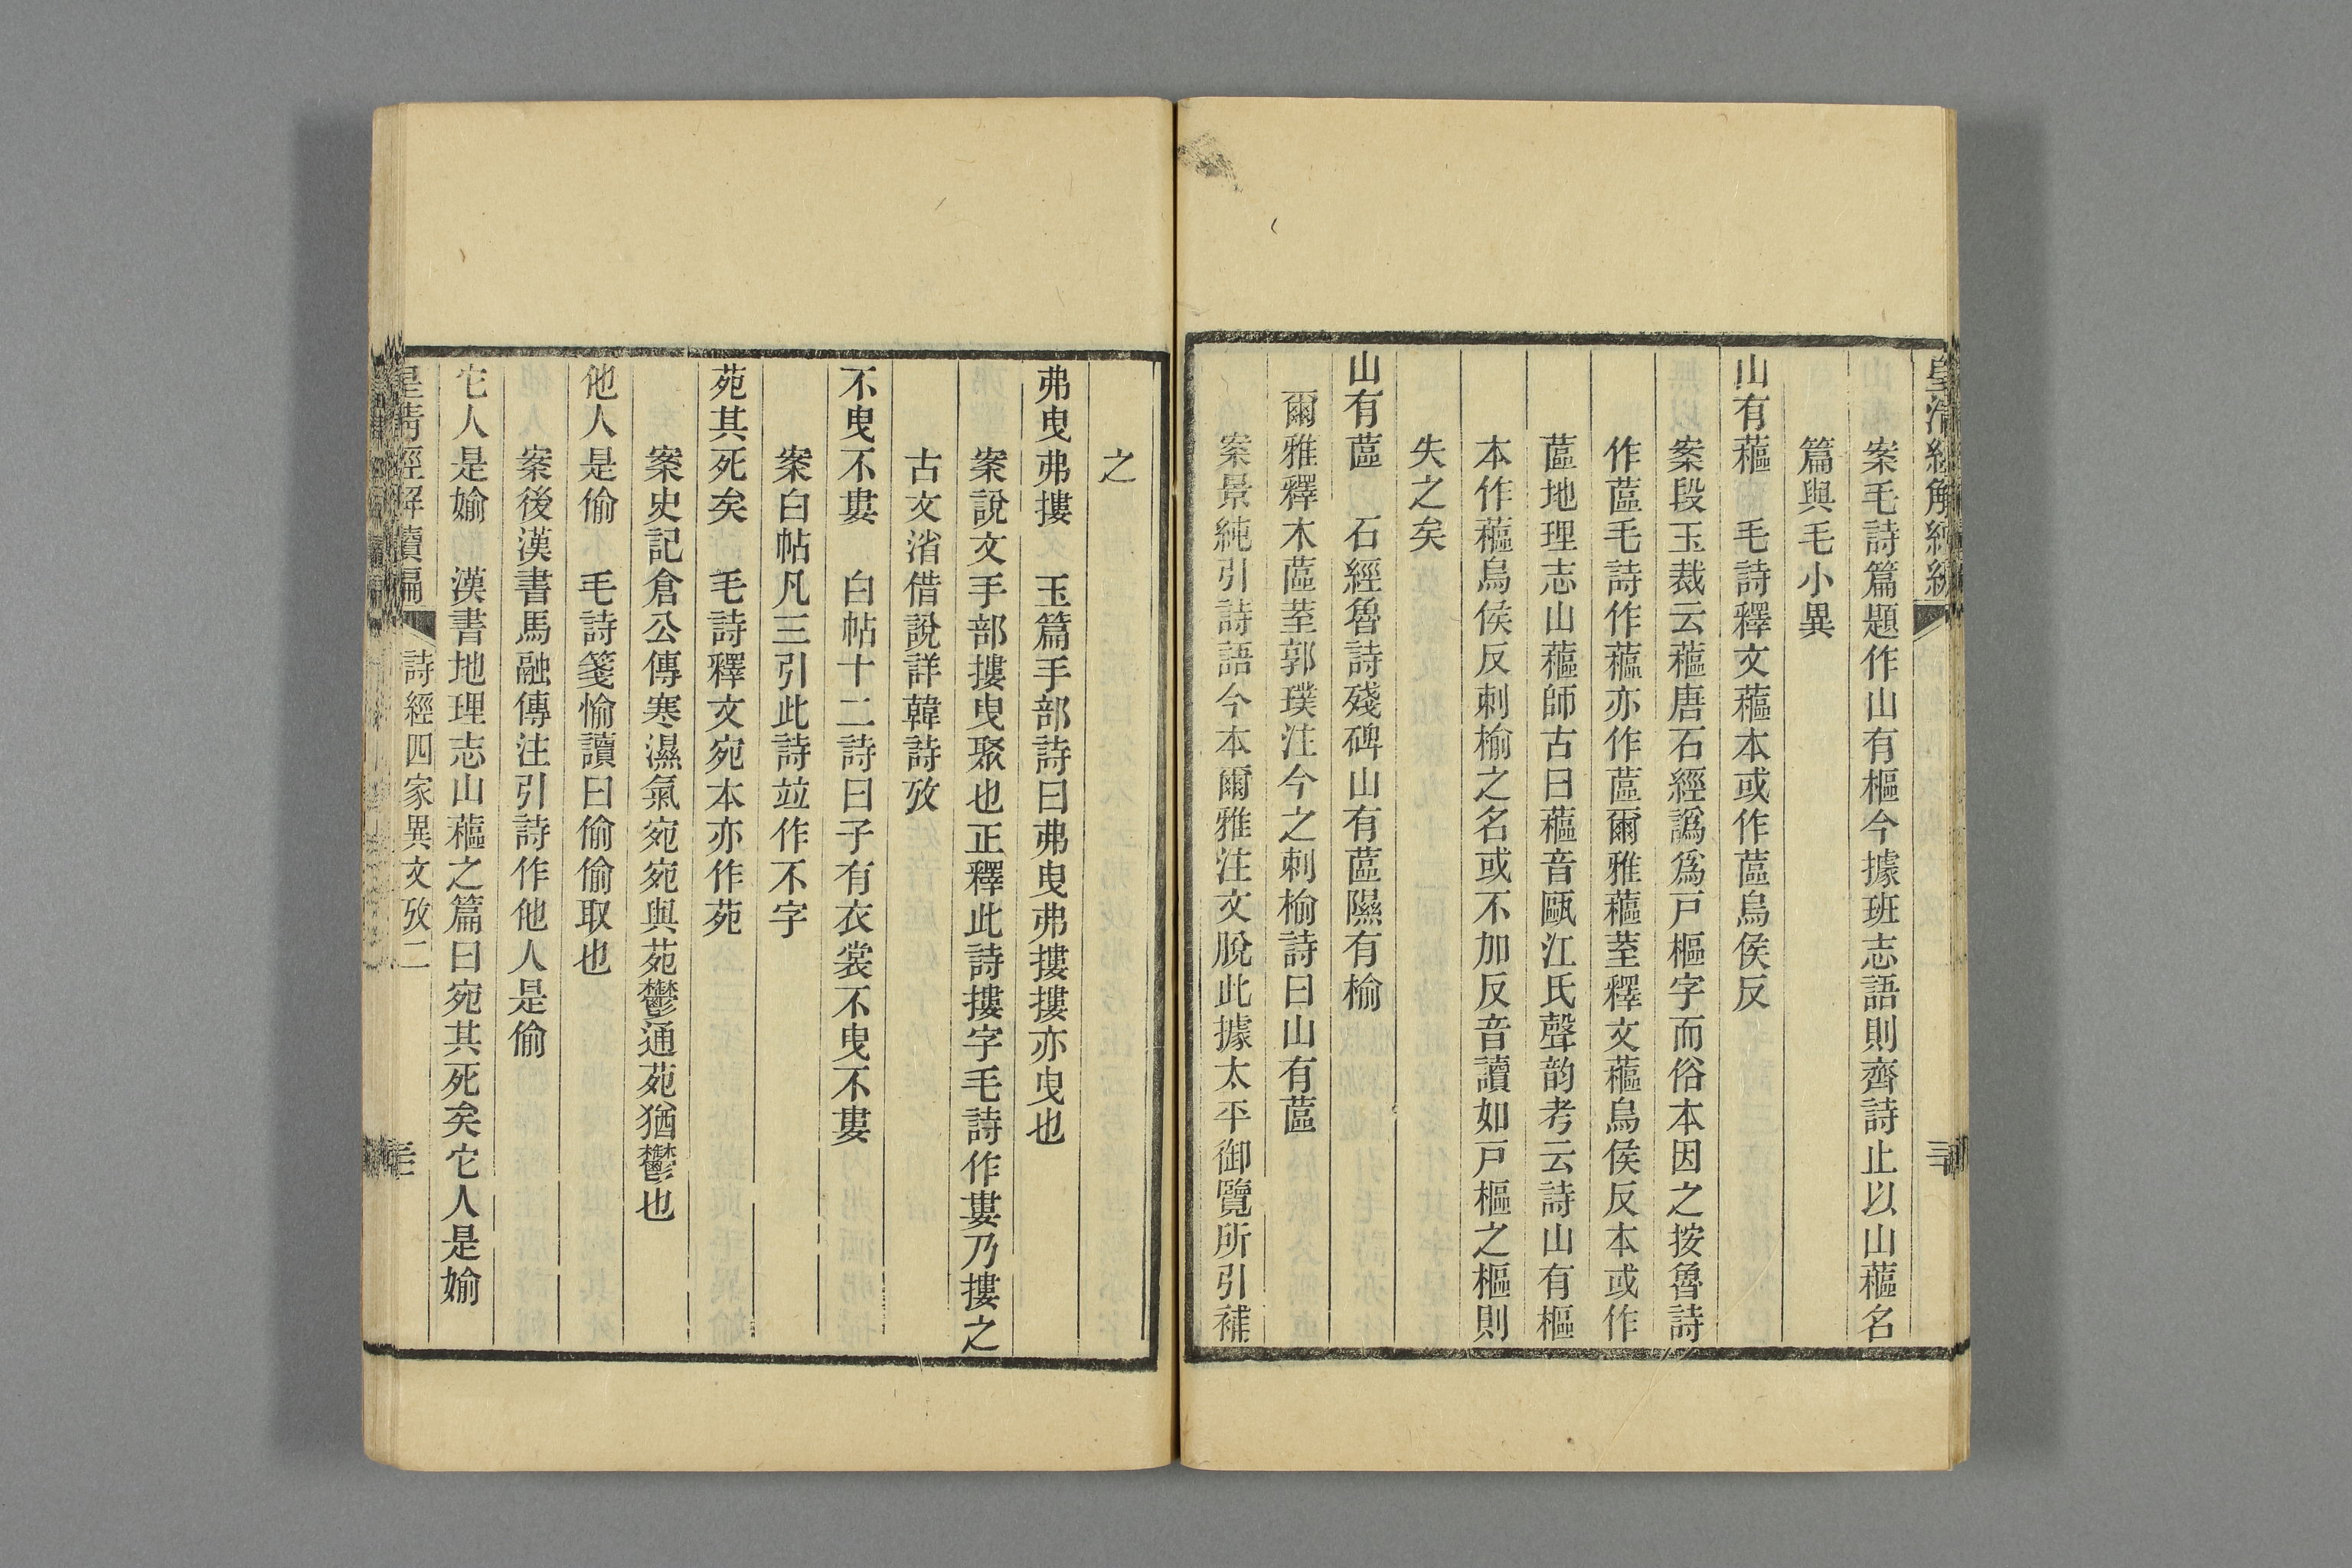 皇清經解續編
案毛詩篇題作山有樞今據班志語則齊詩止以山蓲名
篇與毛小異
山有蓲　毛詩釋文蓲本或作蓲烏侯反
案段玉裁云蓲唐石經譌爲戸樞字而俗本因之按魯詩
作蓲毛詩作蓲亦作蓲爾雅蓲荎釋文蓲烏侯反本或作
蓲地理志山蓲師古曰蓲音甌江氏聲韵考云詩山有樞
本作蓲烏侯反刺楡之名或不加反音讀如戸樞之樞則
失之矣
山有蓲　石經魯詩殘碑山有蓲隰有楡
爾雅釋木蓲荎郭璞注今之刺楡詩曰山有蓲
案景純引詩語今本爾雅注文脫此據太平御覽所引補
之
弗曳弗摟　玉篇手部詩曰弗曳弗摟摟亦曳也
案說文手部摟曳聚也正釋此詩摟字毛詩作婁乃摟之
古文渻借說詳韓詩攷
不曳不婁　白帖十二詩曰子有衣裳不曳不婁
案白帖凡三引此詩竝作不字
苑其死矣　毛詩釋文宛本亦作苑
案史記倉公傳寒濕氣宛宛與苑鬱通苑猶鬱也
他人是偷　毛詩箋愉讀曰偷偷取也
案後漢書馬融傳注引詩作他人是偷
它人是媮　漢書地理志山蓲之篇曰宛其死矣它人是媮
皇清經解續編　詩經四家異文攷二